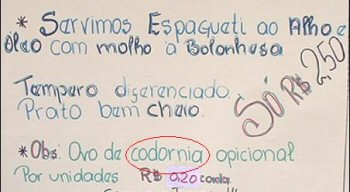 * Sarvimos Espagueti ao Alho e
Óleo com molho à Bolonhesa
Temparo digerenciado.
Prato bem cheio.
Só R$ 2,50
*Obs: Ovo de codornia opicional
Por unidades R$ 0,20 cada